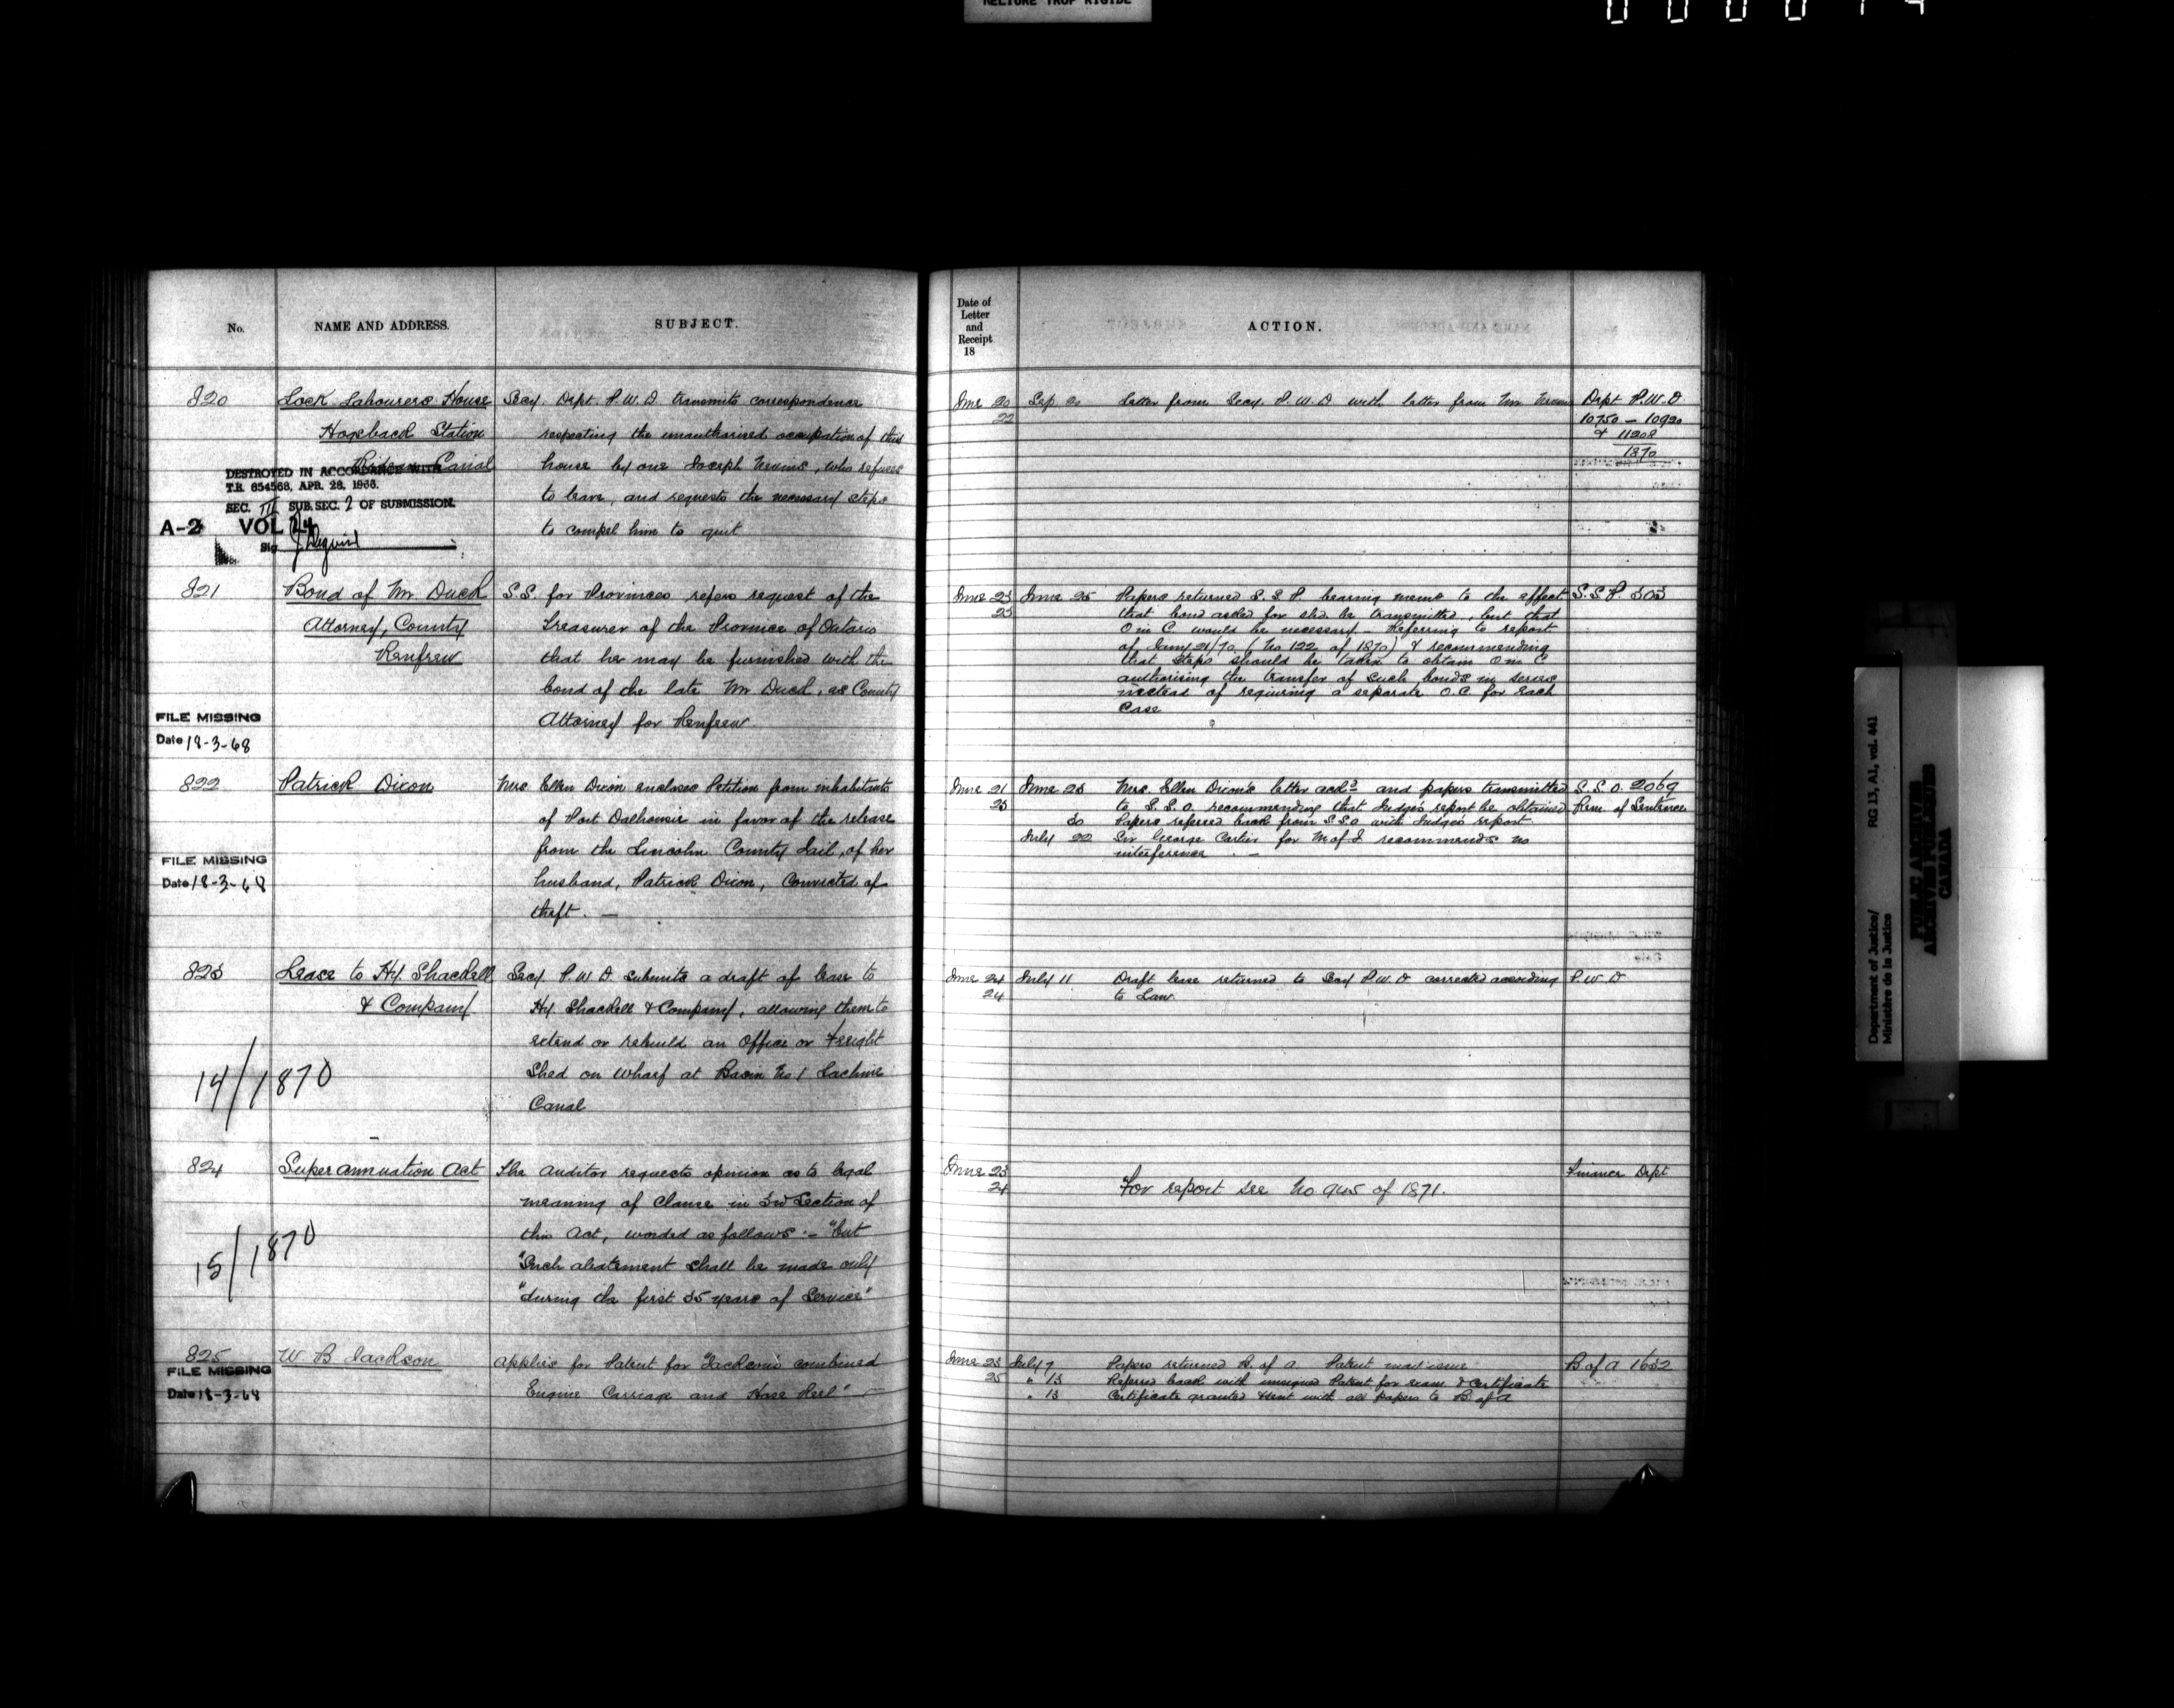 RELIURE TROP RIGIDE
No.
NAME AND ADDRESS.
SUBJECT.
820
Lock Labourers House
Hogsback Station
Rideau Canal
Secy. Dept. P.W.D transmits correspondence
respecting the unauthorised occupation of this
house by one Joseph Nevins, who refuses
to leave, and requests the necessary steps
to compel him to quit
DESTROYED IN ACCORDANCE WITH
T.B. 654568, APR. 28, 1966.
SEC. III SUB.SEC. 2 OF SUBMISSION.
A-2 VOL 24
Sig
821
Bond of Mr Duck
Attorney, County
Renfrew
S.S. for Provinces refers request of the
Treasurer of the Province of Ontario
that he may be furnished with the
bond of the late Mr Duck, as County
Attorney for Renfrew.
FILE MISSING
Date 18-3-68
822
Patrick Dixon
Mrs Ellen Dixon encloses Petition from inhabitants
of Port Dalhousie in favor of the release
from the Lincoln County Jail, of her
husband, Patrick Dixon, Convicted of
theft. —
FILE MISSING
Date 18-3-68
823
Lease to Hy. Shackell
& Company
Secy P.W.D submits a draft of lease to
Hy. Shackell & Company, allowing them to
extend or rebuild an Office or Freight
Shed on Wharf at Basin No 1 Lachine
Canal
14/1870
824
Superannuation Act
The Auditor requests opinion as to legal
meaning of Clause in 3rd Section of
this Act, worded as follows :— "but
"Such abatement shall be made only
"during the first 35 years of Service"
15/1870
825
W B Jackson
Applies for Patent for "Jackson's combined
Engine Carriage and Hose Reel" —
FILE MISSING
Date 18-3-68
Date of
Letter
and
Receipt
18
ACTION.
June 20
22
Sep. 20 Letter from Secy P.W.D with letter from Mr Nevins
Dept P.W.D
10750 — 10920
& 11208
1870
June 23
25
June 25 Papers returned S.S.P. bearing memo to the effect
that bond asked for shd. be transmitted, but that
O in C. would be necessary — Referring to report
of Jany 21/70 (No 122 of 1870) & recommending
that steps should be taken to obtain O in C
authorising the transfer of such bonds in series
instead of requiring a separate O.C. for each
case
S.S.P. 303
June 21
25
June 25 Mrs. Ellen Dixon's letter ackd and papers transmitted
to S.S.O. recommending that Judge's report be obtained
30 Papers referred back from S.S.O with Judge's report
July 22 Sir George Cartier for M of J recommends no
interference —
S.S.O. 2069
Rem. of Sentence
June 24
24
July 11 Draft lease returned to Secy P.W.D corrected according
to Law.
P.W.D
June 23
24
For report see No 945 of 1871.
Finance Dept
June 23
25
July 7 Papers returned B. of A. Patent may issue
" 13 Referred back with unsigned Patent for exam & Certificate
" 13 Certificate granted & sent with all papers to B of A
B of A 1652
Department of Justice/
Ministère de la Justice
RG 13, A1, vol. 441
PUBLIC ARCHIVES
ARCHIVES PUBLIQUES
CANADA